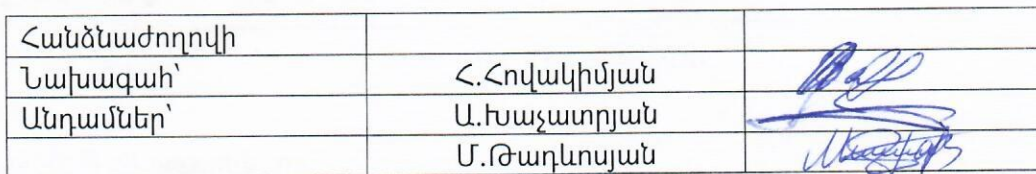 Հանձնաժողովի
Նախագահ՝ Հ.Հովակիմյան
Անդամներ՝ Ա.Խաչատրյան
Մ.Թադևոսյան